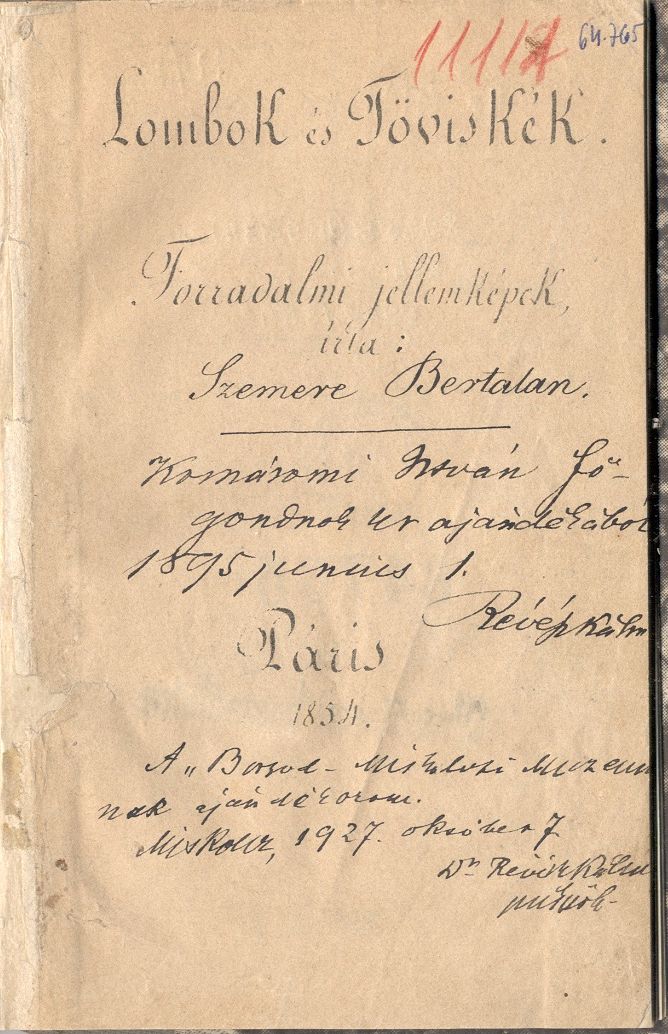 11112
64.765
Lombok és Töviskék.
Forradalmi jellemképek,
írta:
Szemere Bertalan.
Komáromi István fő-
gondnok úr ajándékából
1895 junius 1.
Révész Kálm
Páris
1854.
A „Borsod-Miskolczi Muzeum
nak ajándékozom.
Miskolcz, 1927. október 7.
Dr Révész Kálmán
püspök